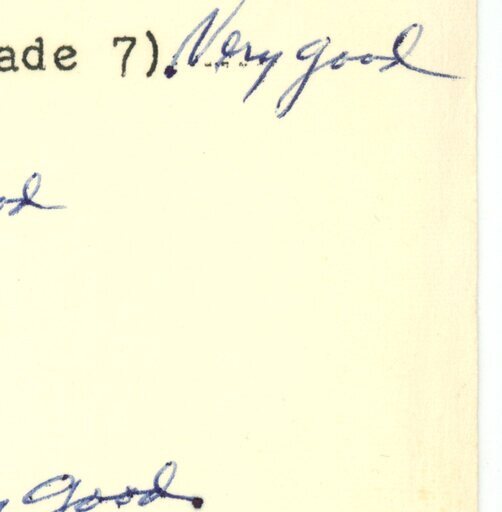 ade 7). Very good
od
y good.